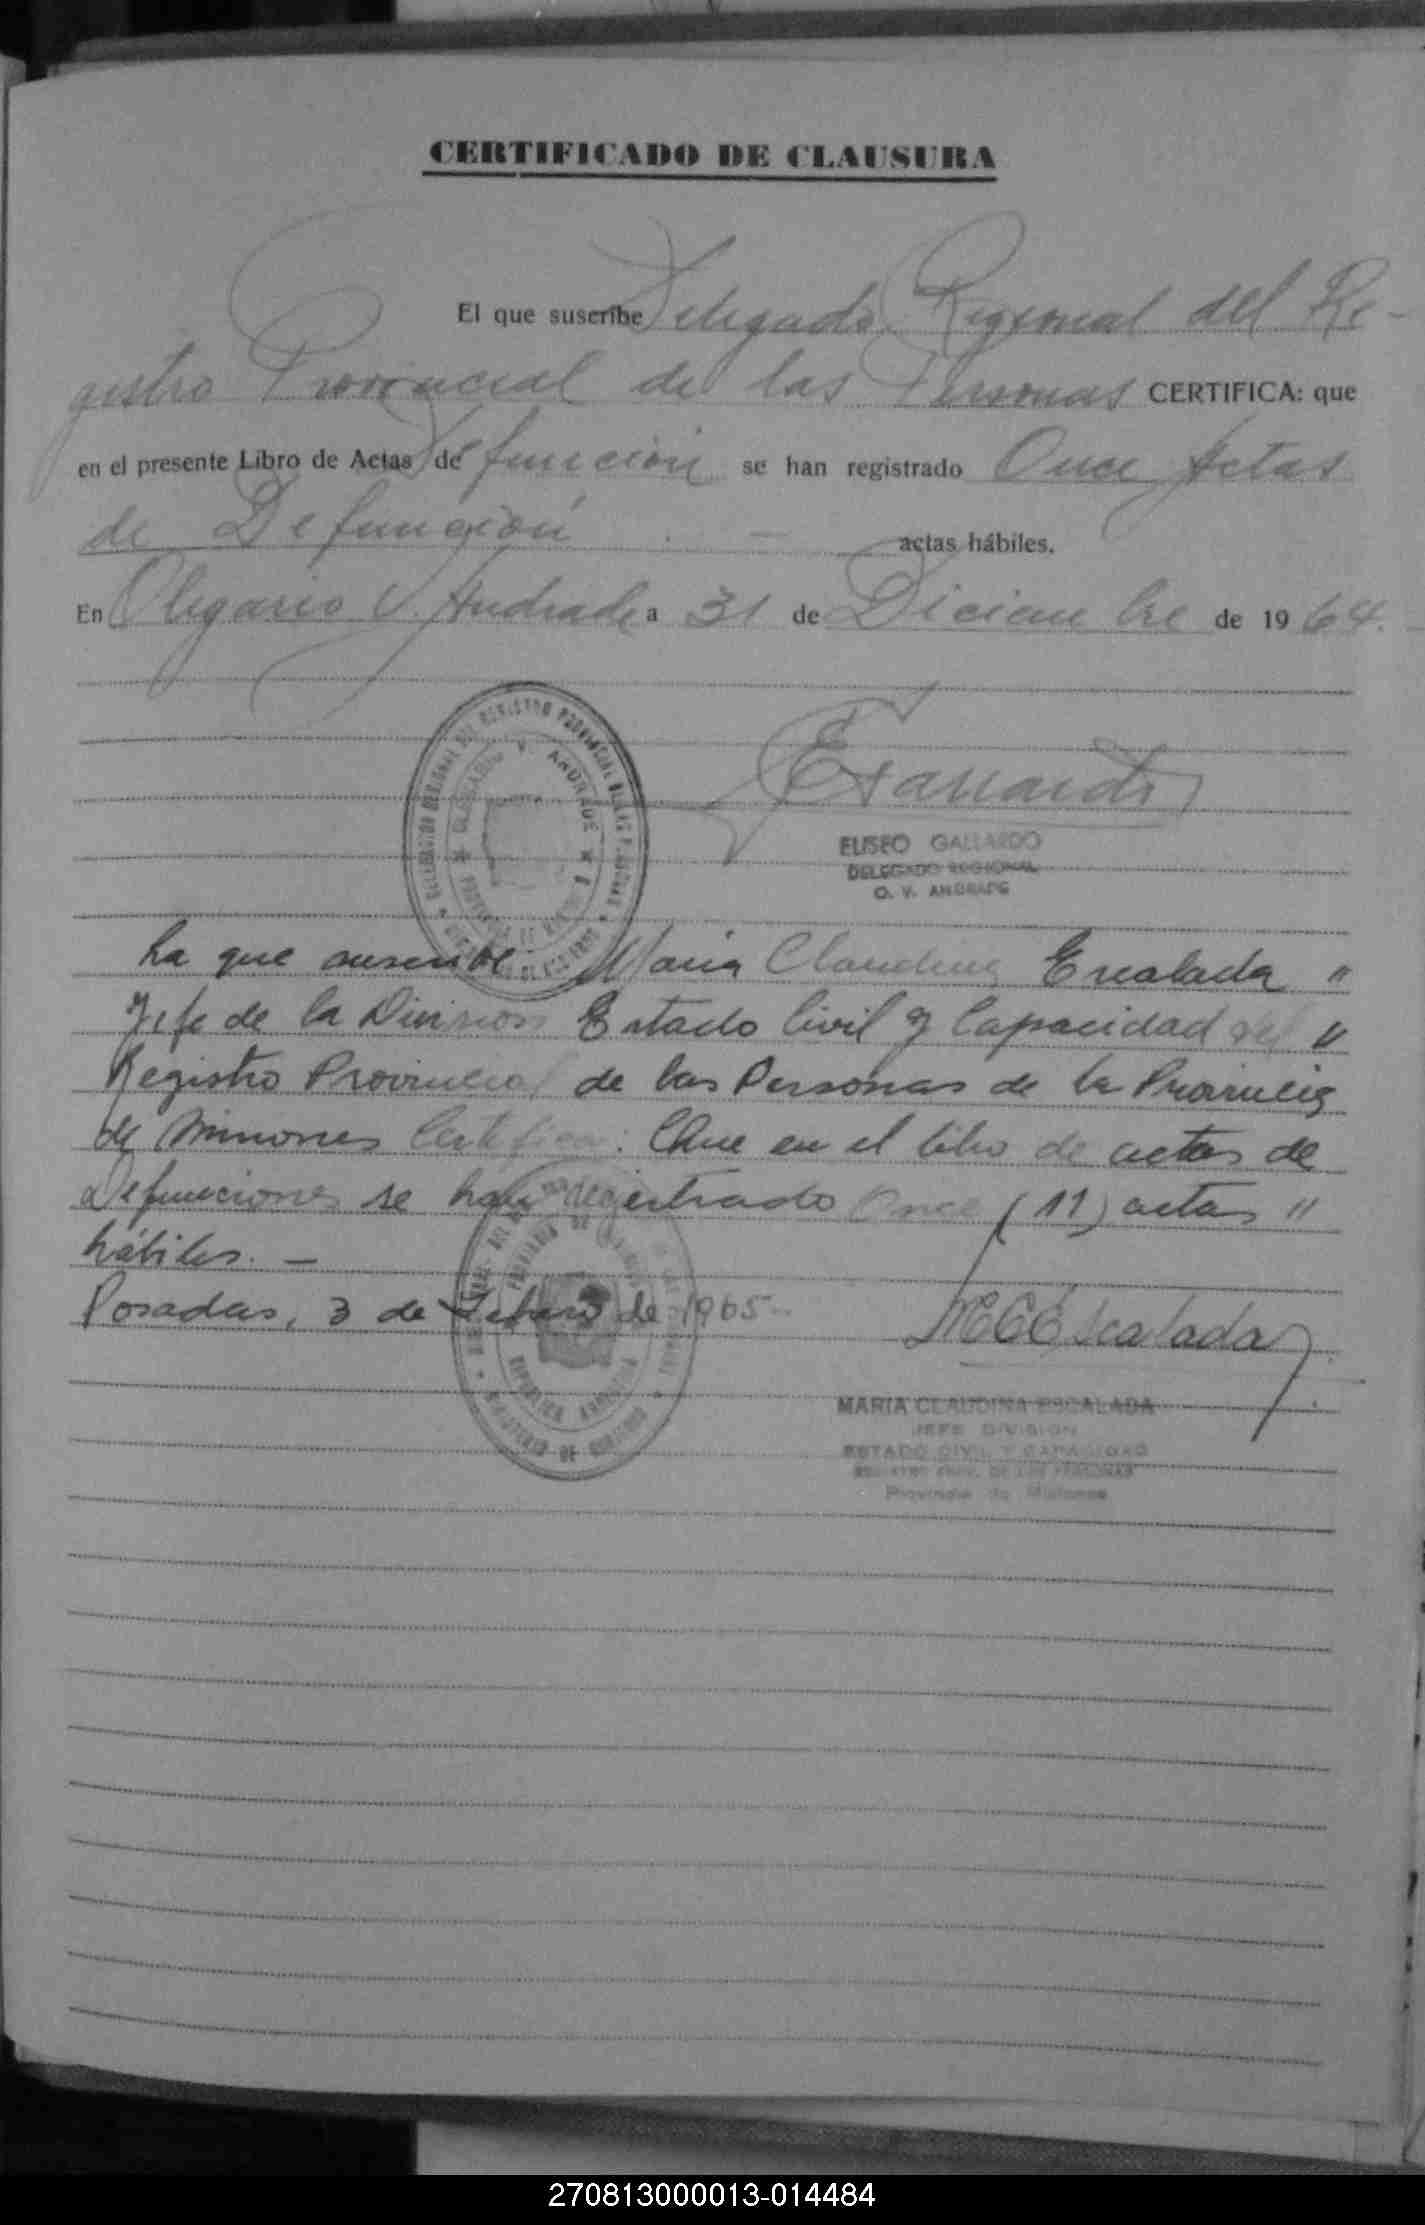 CERTIFICADO DE CLAUSURA
El que suscribe Delegado Regional del Re-
gistro Provincial de las Personas CERTIFICA: que
en el presente Libro de Actas de Defunción se han registrado Once Actas
de Defunción . — actas hábiles.
En Olegario V. Andrade a 31 de Diciembre de 1964.
DELEGACION REGIONAL DEL REGISTRO PROVINCIAL DE LAS PERSONAS
OLEGARIO V. ANDRADE
EGallardo
ELISEO GALLARDO
DELEGADO REGIONAL
O. V. ANDRADE
La que suscribe Maria Claudina Escalada "
Jefe de la División Estado Civil y Capacidad del "
Registro Provincial de las Personas de la Provincia
de Misiones Certifica: Que en el libro de actas de
Defunciones se han registrado Once (11) actas "
hábiles. —
Posadas, 3 de Febrero de 1965
PROVINCIA DE MISIONES
REPUBLICA ARGENTINA
MINISTERIO DE GOBIERNO
MCEscalada
MARIA CLAUDINA ESCALADA
JEFE DIVISION
ESTADO CIVIL Y CAPACIDAD
REGISTRO PROV. DE LAS PERSONAS
Provincia de Misiones
270813000013-014484